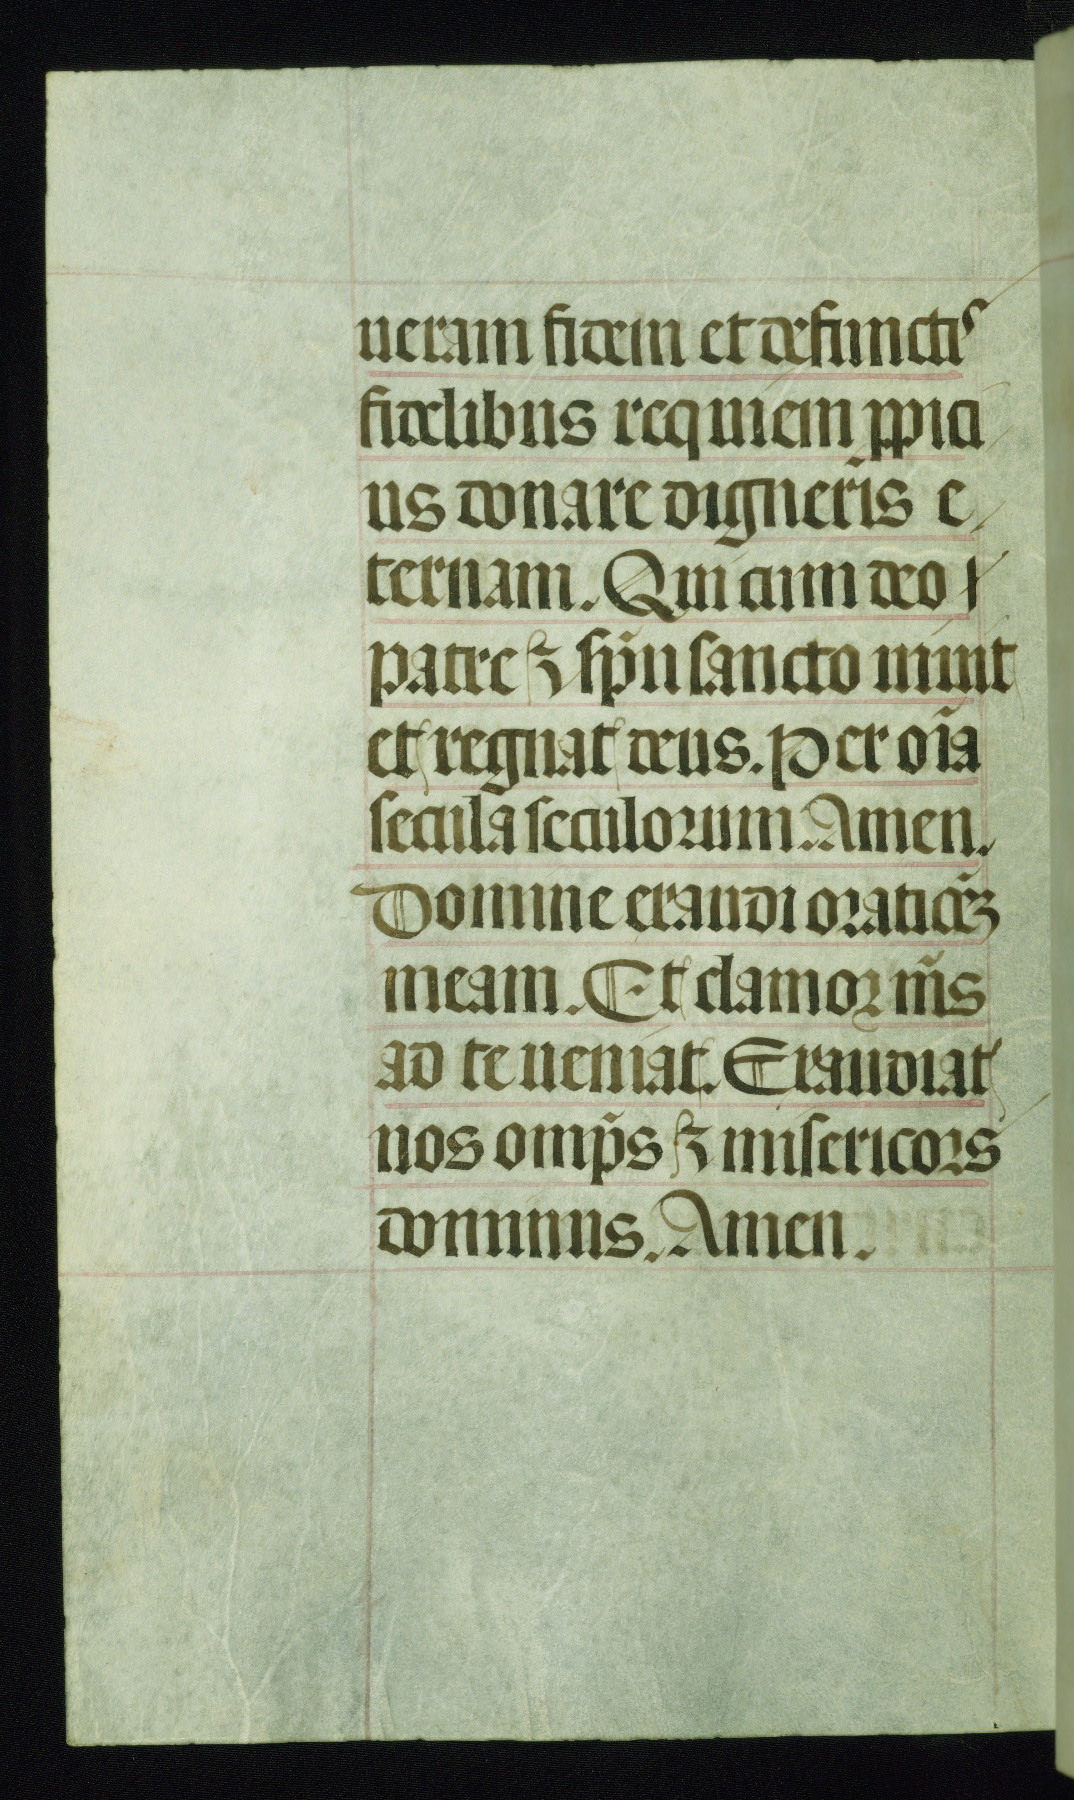 ueram fidem et defunctis
fidelibus requiem ꝓpici
us donare digneris e
ternam. Qui cum deo
patre ⁊ sp̃u sancto uiuit
et regnat deus. Per oı̃a
secula seculorum. Amen.
Domine exaudi oratiõeȝ
meam. Et clamor m̃s
ad te ueniat. Exaudiat
nos omp̃s ⁊ misericors
dominus. Amen.